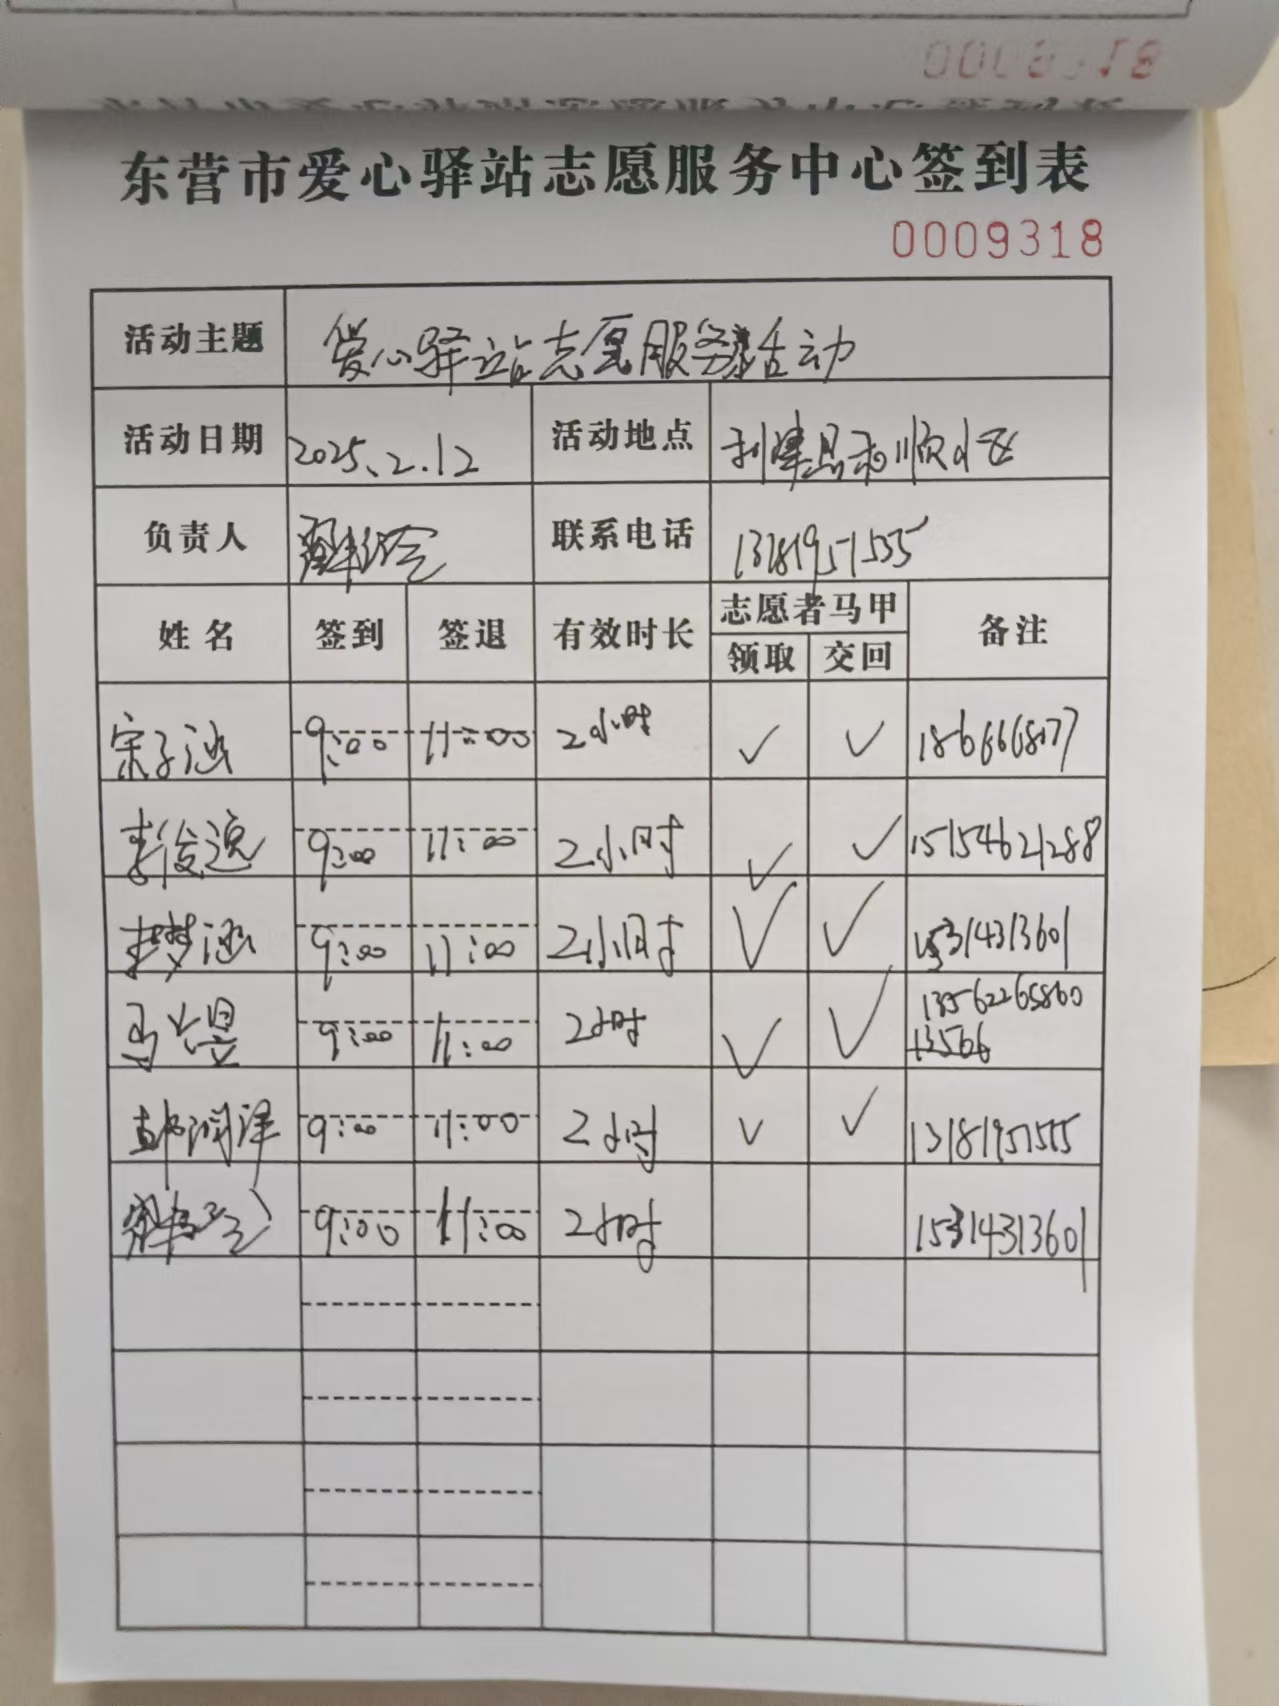 东营市爱心驿站志愿服务中心签到表
0009318
活动主题 爱心驿站志愿服务活动
活动日期 2025.2.12 活动地点 利津县利顺小区
负责人 联系电话 13181951555
姓名 签到 签退 有效时长 志愿者马甲 备注
领取 交回
宋子涵 9:00 11:00 2小时 ✓ ✓ 18666668177
李俊逸 9:00 11:00 2小时 ✓ ✓ 15154621288
李梦涵 9:00 11:00 2小时 ✓ ✓ 15314313601
13562265860
马 昱 9:00 11:00 2小时 ✓ ✓ 13566
润洋 9:00 11:00 2小时 ✓ ✓ 13181951555
9:00 11:00 2小时 15314313601